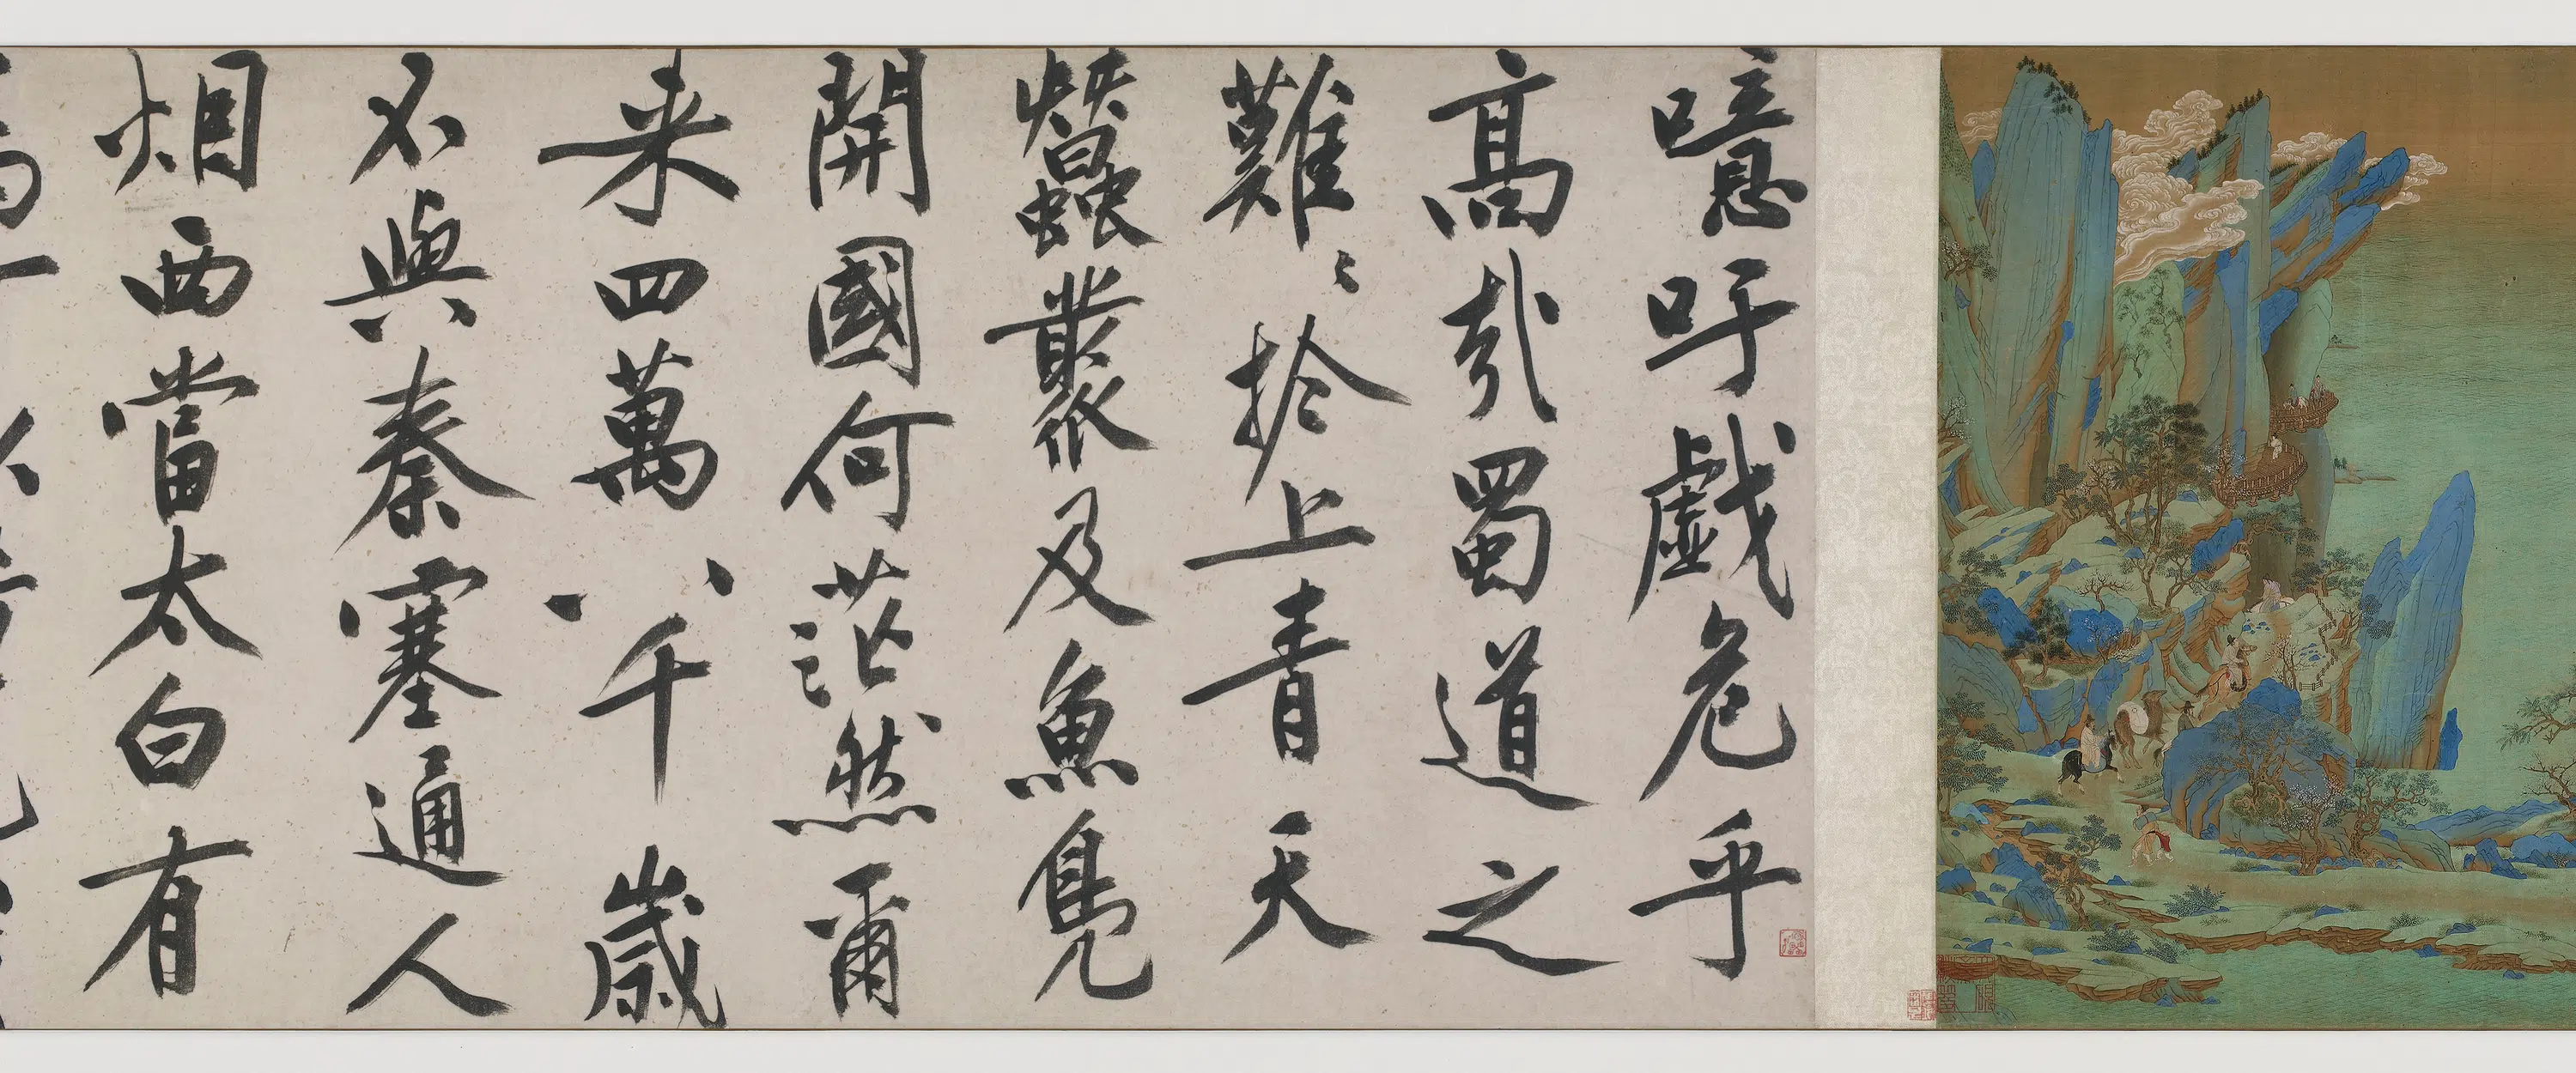 噫吁戯危乎
髙哉蜀道之
難〻於上青天
蠶叢及魚鳬
開國何茫然爾
来四萬八千歳
不與秦塞通人
烟西當太白有